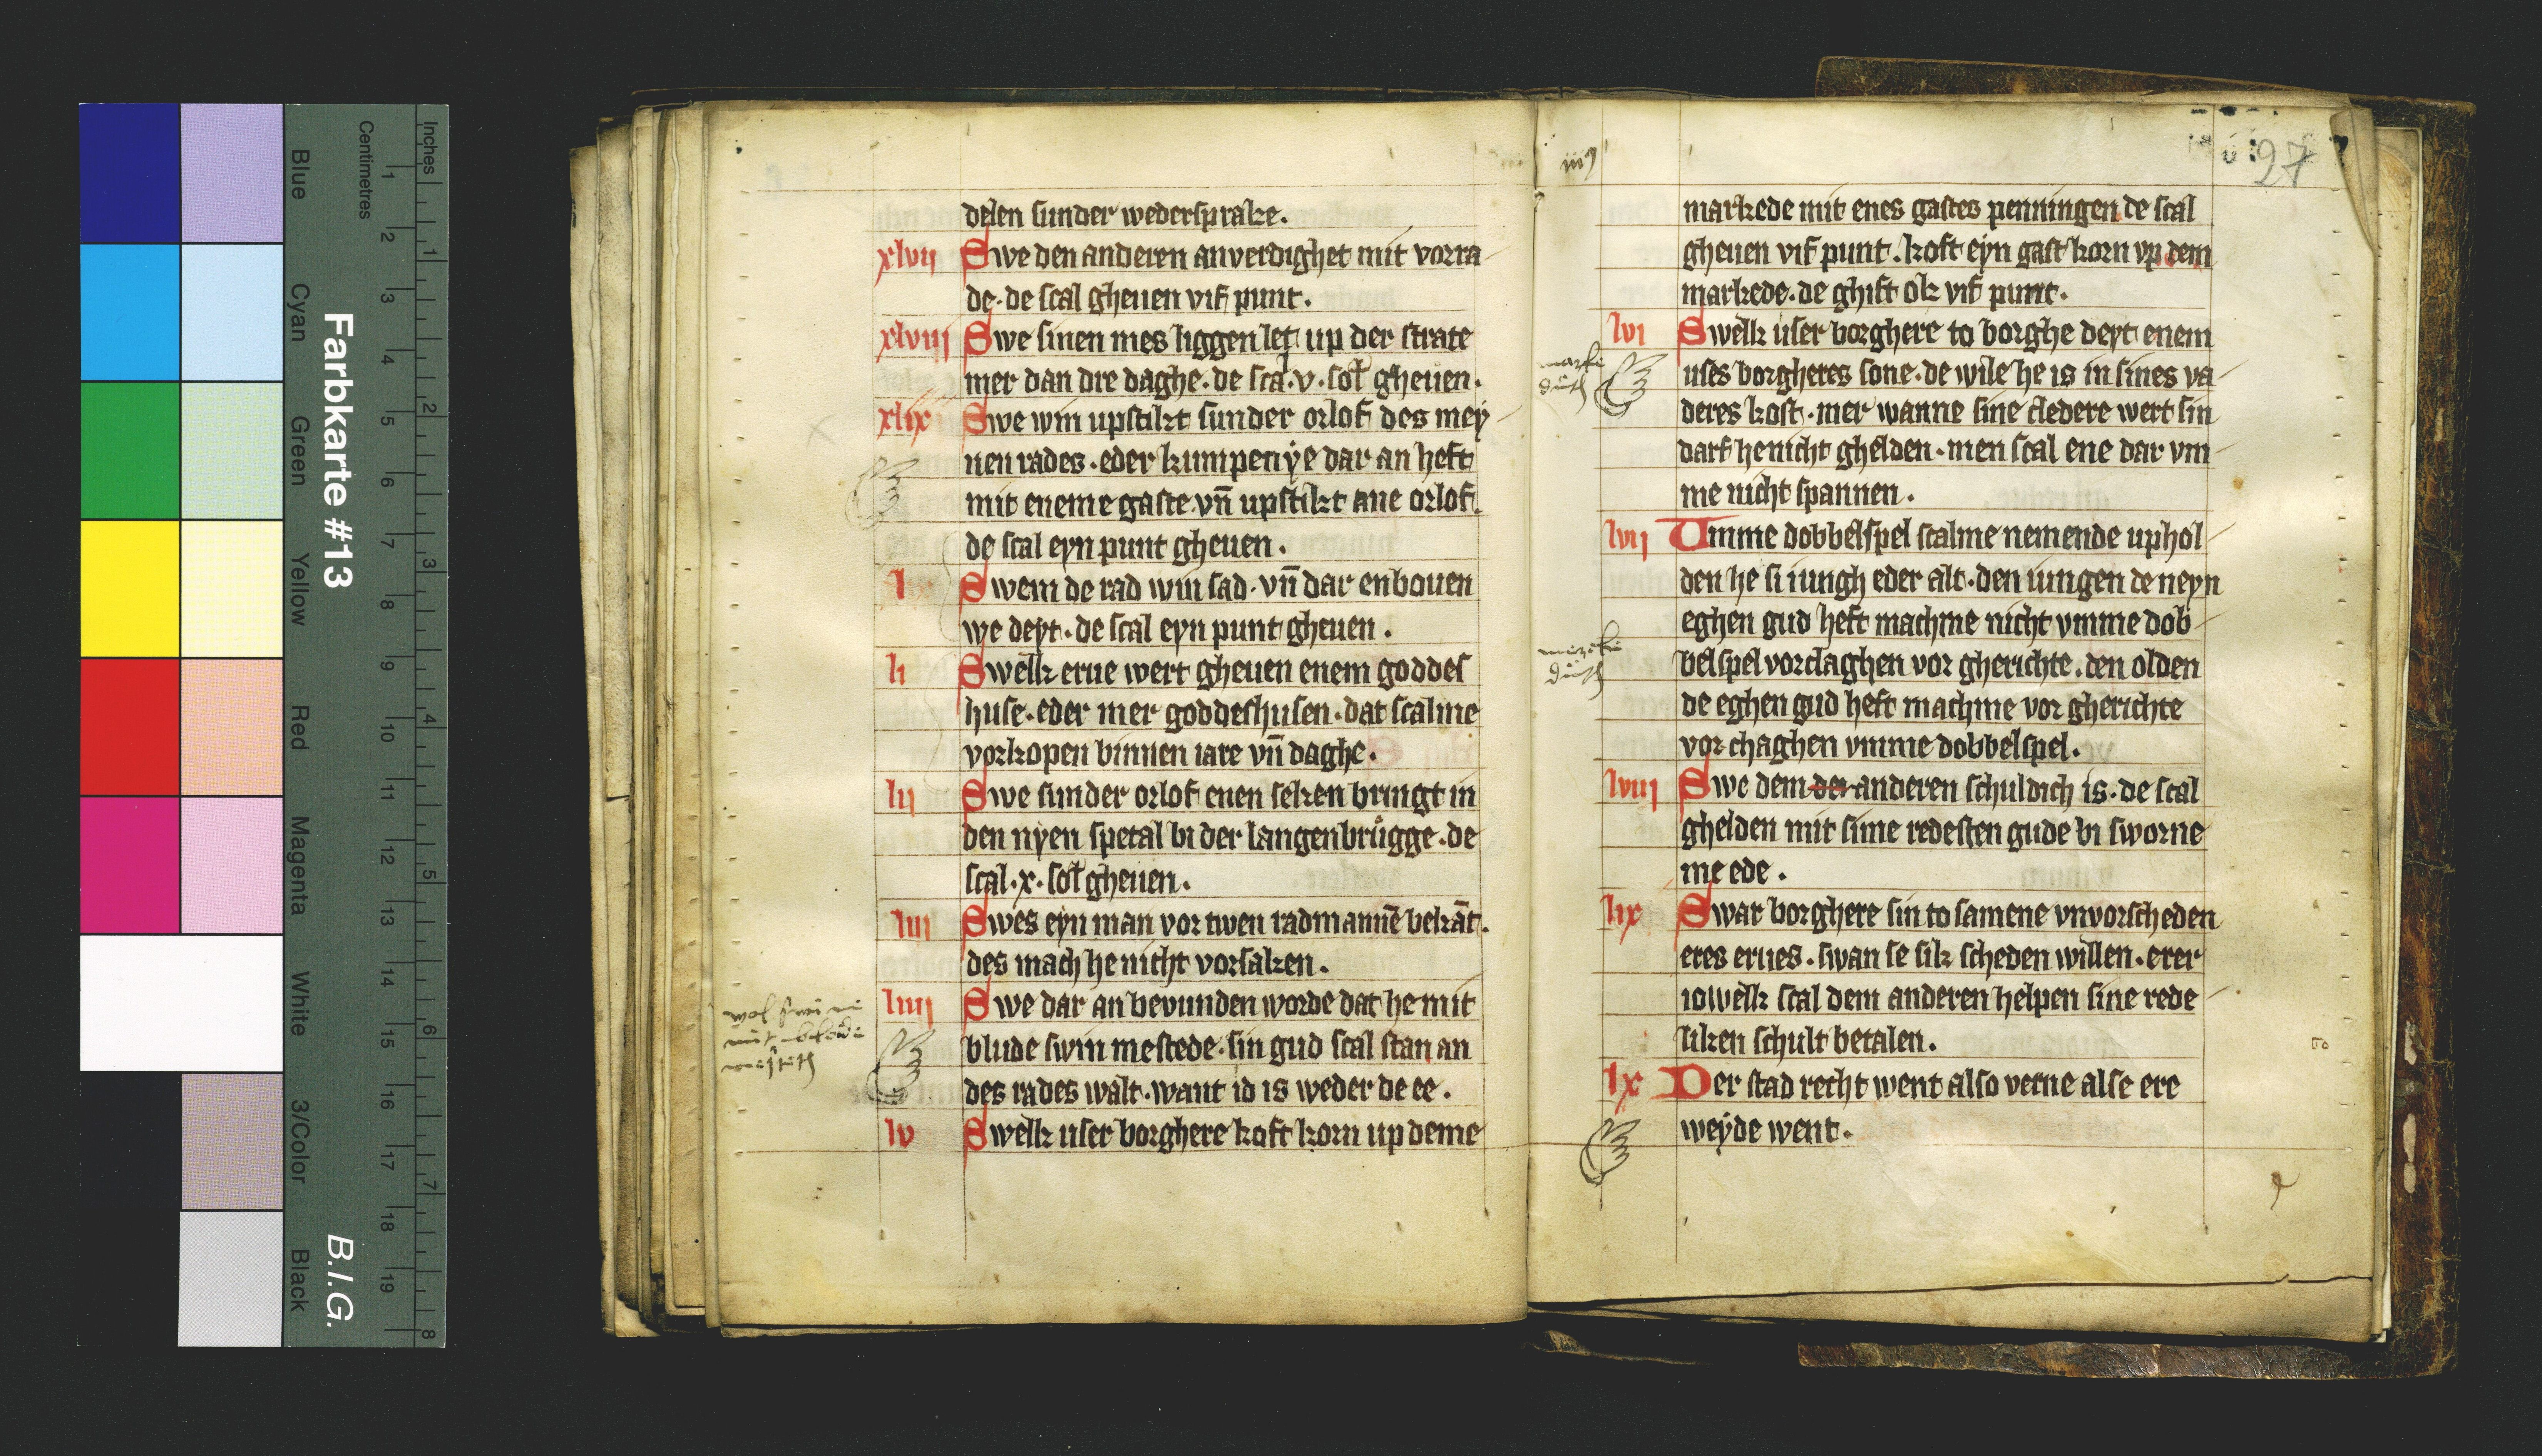 Blue
Cyan
Green
Yellow
Red
Magenta
White
3/Color
Black
Farbkarte #13
B.I.G.
Centimetres
Inches
1 2 3 4 5 6 7 8 9 10 11 12 13 14 15 16 17 18 19
1 2 3 4 5 6 7 8
delen sunder wedersprake.
xlvij Swe den anderen anverdighet mit vorra
de· de scal gheuen vif punt.
xlviij Swe sinen mes liggen let up der strate
mer dan dre daghe· de sca·v·sol gheuen.
xlix Swe win upstikt sunder orlof des mey
nen rades· eder kumpenÿe dar an heft
mit eneme gaste vn̄ upstikt ane orlof.
de scal eyn punt gheuen.
l Swem de rad win sad· vn̄ dar enbouen
we deyt· de scal eyn punt gheuen.
li Swelk erue wert gheuen enem goddes
huse· eder mer goddeshusen· dat scalme
vorkopen binnen iare vn̄ daghe.
lij Swe sunder orlof enen seken bringt in
den nyen spetal bi der langenbrůgge· de
scal·x· sol gheuen.
liij Swes eyn man vor twen radmannē bekāt.
des mach he nicht vorsaken.
liiij Swe dar an bevunden worde dat he mit
blude swin mestede· sin gud scal stan an
des rades walt· want id is weder de ee.
lv Swelk user borghere koft korn up deme
27
markede mit enes gastes penningen de scal
gheuen vif punt. koft eyn gast korn vp dem
markede· de ghift ok vif punt.
lvi Swelk user borghere to borghe deyt enem
uses borgheres sone· de wile he is in sines va
deres kost· mer wanne sine cledere wert sin
darf he nicht ghelden· men scal ene dar vm
me nicht spannen.
lvij Umme dobbelspel scalme nemende uphol
den he si iungh eder alt· den iungen de neyn
eghen gud heft machme nicht vmme dob
belspel vorclaghen vor gherichte· den olden
de eghen gud heft machme vor gherichte
vor chaghen vmme dobbelspel.
lviij Swe dem der anderen schuldich is· de scal
ghelden mit sime redesten gude bi sworne
me ede.
lix Swar borghere sin to samene vnvorscheden
eres erues· swan se sik scheden willen· erer
iowelk scal dem anderen helpen sine rede
liken schult betalen.
lx Der stad recht went also verne alse ere
weÿde went.